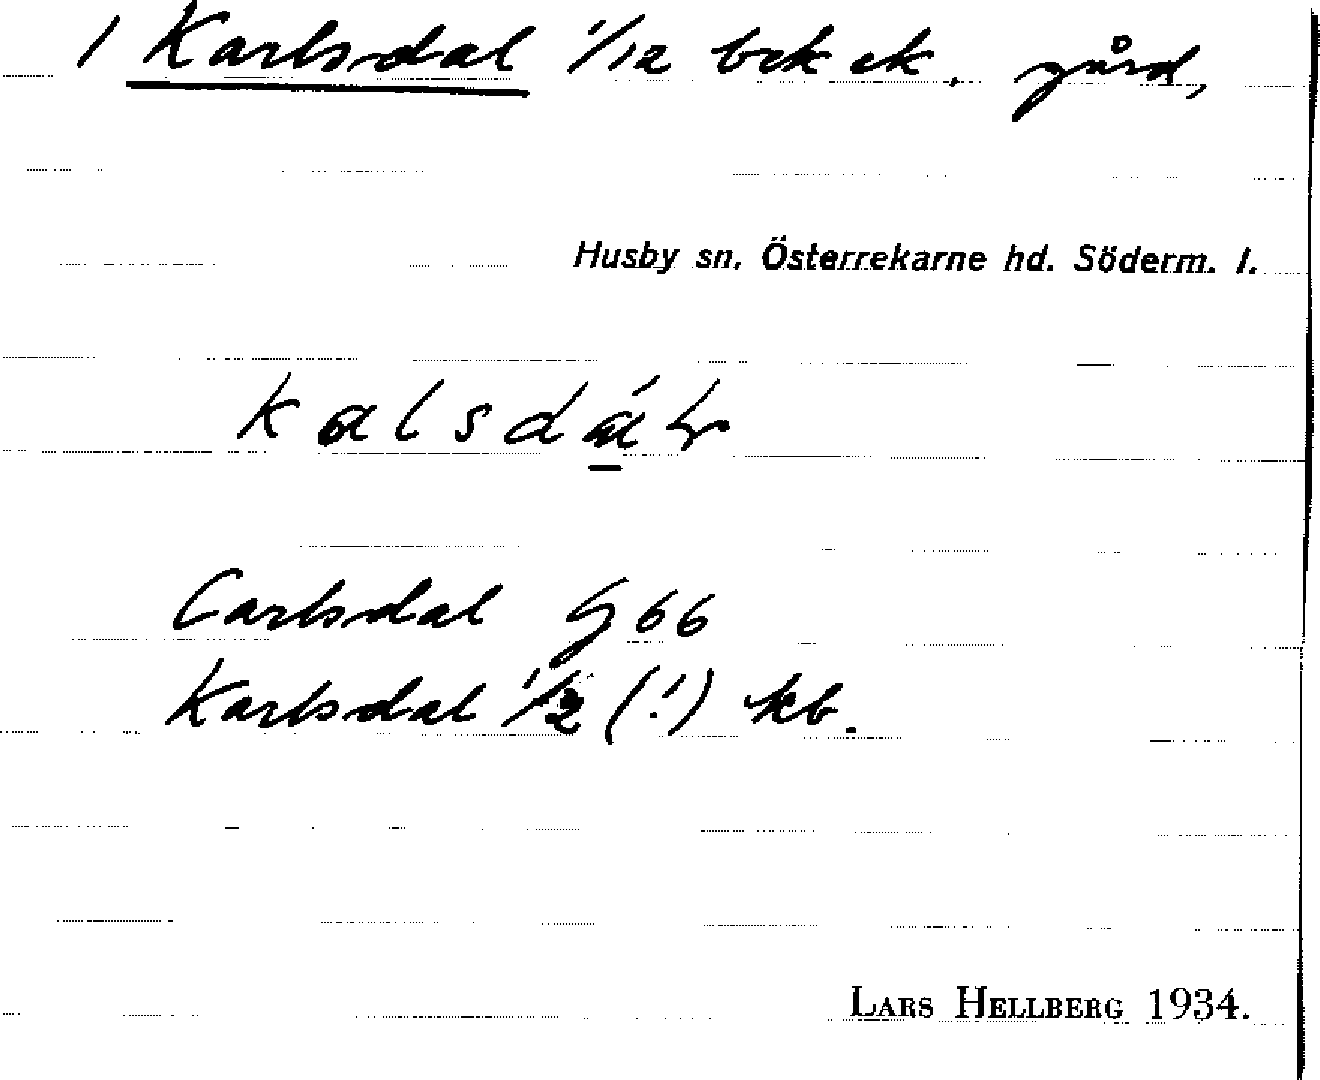 1 Karlsdal 1/12 bok ek. gård,
Husby sn. Österrekarne hd. Söderm. l.
kalsdál
Carlsdal G 66
Karlsdal 1/2 (!) kb.
LARS HELLBERG 1934.